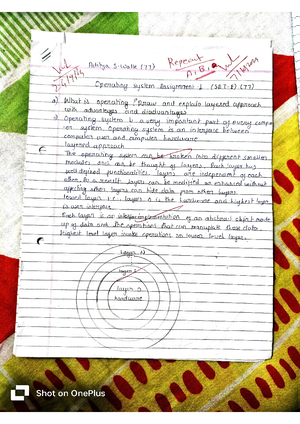 Aditya S. Walke (77)
Repeat
A, B,
Operating system Assignment 1 (SET:E) (77)
a) What is operating? Draw and explain layered approach
with advantages and disadvantages
Operating system is a very important part of every
system. Operating system is an interface between
computer user and computer hardware
layered approach
The operating system can be broken into different smaller
modules and can be thought of layers. Each layer has
well defined functionalities. layers are independent of each
other. As a result layer can be modified or enhanced without
affecting other layers can hide data from other layers.
lowest layer i.e., layer 0 is the hardware and highest layer
is user interface.
Each layer is an implementation of an abstract object made
up of data and the operations that can manipulate those data
Highest level layer invoke operations on lower level layer.
layer
layer 1
layer 0
hardware
Shot on OnePlus